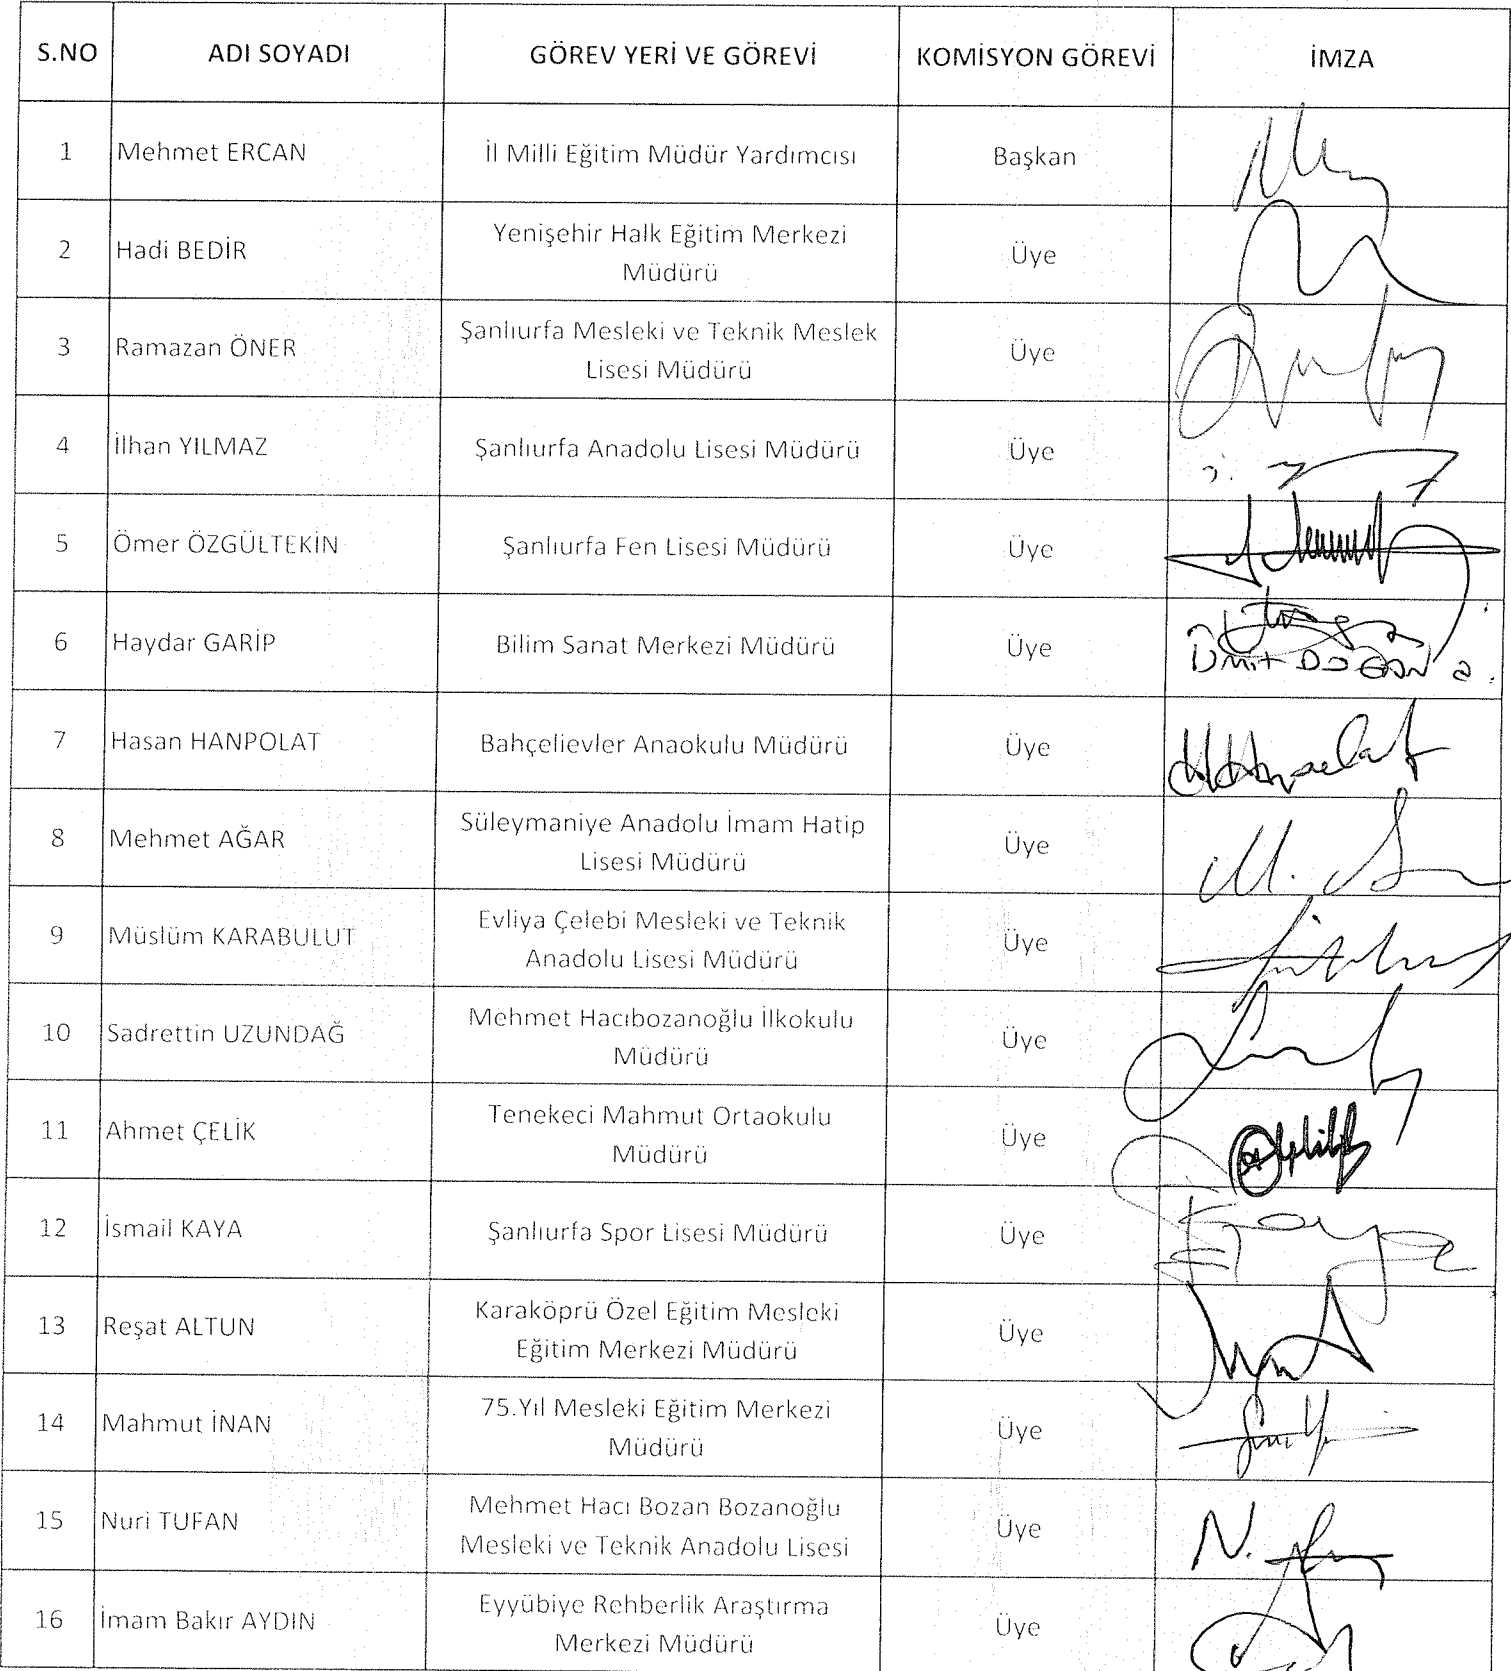 S.NO ADI SOYADI GÖREV YERİ VE GÖREVİ KOMİSYON GÖREVİ İMZA
1 Mehmet ERCAN İl Milli Eğitim Müdür Yardımcısı Başkan
2 Hadi BEDİR Yenişehir Halk Eğitim Merkezi
Müdürü Üye
3 Ramazan ÖNER Şanlıurfa Mesleki ve Teknik Meslek
Lisesi Müdürü Üye
4 İlhan YILMAZ Şanlıurfa Anadolu Lisesi Müdürü Üye
5 Ömer ÖZGÜLTEKİN Şanlıurfa Fen Lisesi Müdürü Üye
6 Haydar GARİP Bilim Sanat Merkezi Müdürü Üye
Ümit DOĞAN
7 Hasan HANPOLAT Bahçelievler Anaokulu Müdürü Üye
8 Mehmet AĞAR Süleymaniye Anadolu İmam Hatip
Lisesi Müdürü Üye
9 Müslüm KARABULUT Evliya Çelebi Mesleki ve Teknik
Anadolu Lisesi Müdürü Üye
10 Sadrettin UZUNDAĞ Mehmet Hacıbozanoğlu İlkokulu
Müdürü Üye
11 Ahmet ÇELİK Tenekeci Mahmut Ortaokulu
Müdürü Üye
12 İsmail KAYA Şanlıurfa Spor Lisesi Müdürü Üye
13 Reşat ALTUN Karaköprü Özel Eğitim Mesleki
Eğitim Merkezi Müdürü Üye
14 Mahmut İNAN 75.Yıl Mesleki Eğitim Merkezi
Müdürü Üye
15 Nuri TUFAN Mehmet Hacı Bozan Bozanoğlu
Mesleki ve Teknik Anadolu Lisesi Üye
16 İmam Bakır AYDIN Eyyübiye Rehberlik Araştırma
Merkezi Müdürü Üye